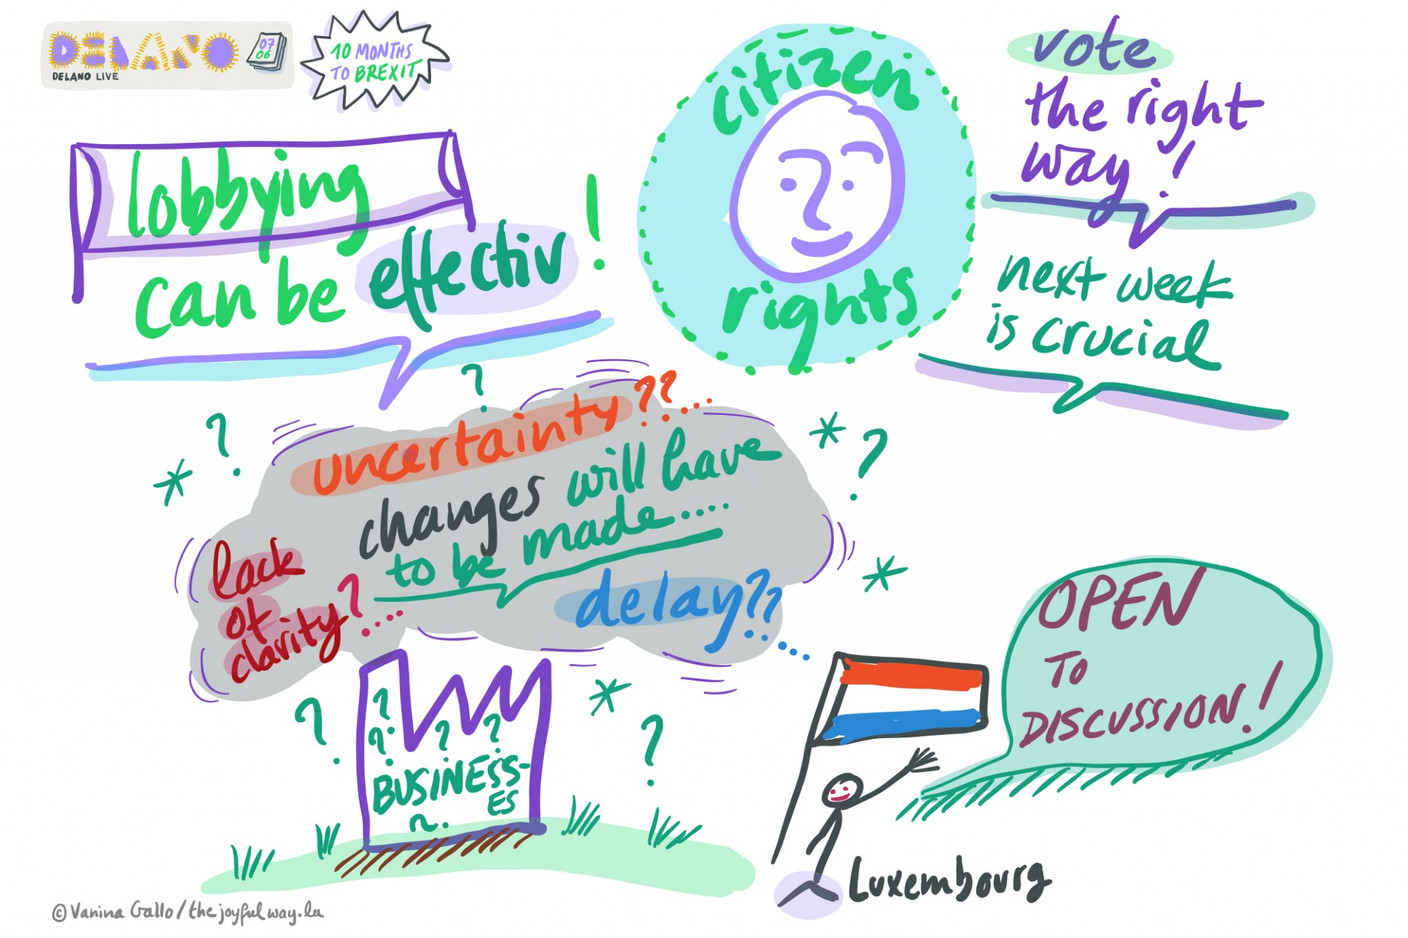 DELANO
DELANO LIVE
07
06
10 MONTHS
TO BREXIT
lobbying
can be effectiv !
citizen
rights
vote
the right
way !
next week
is crucial
uncertainty ??...
changes will have
to be made....
lack
of
clarity ?....
delay ??....
BUSINESS-
ES
OPEN
TO
DISCUSSION !
Luxembourg
© Vanina Gallo / thejoyfulway.lu